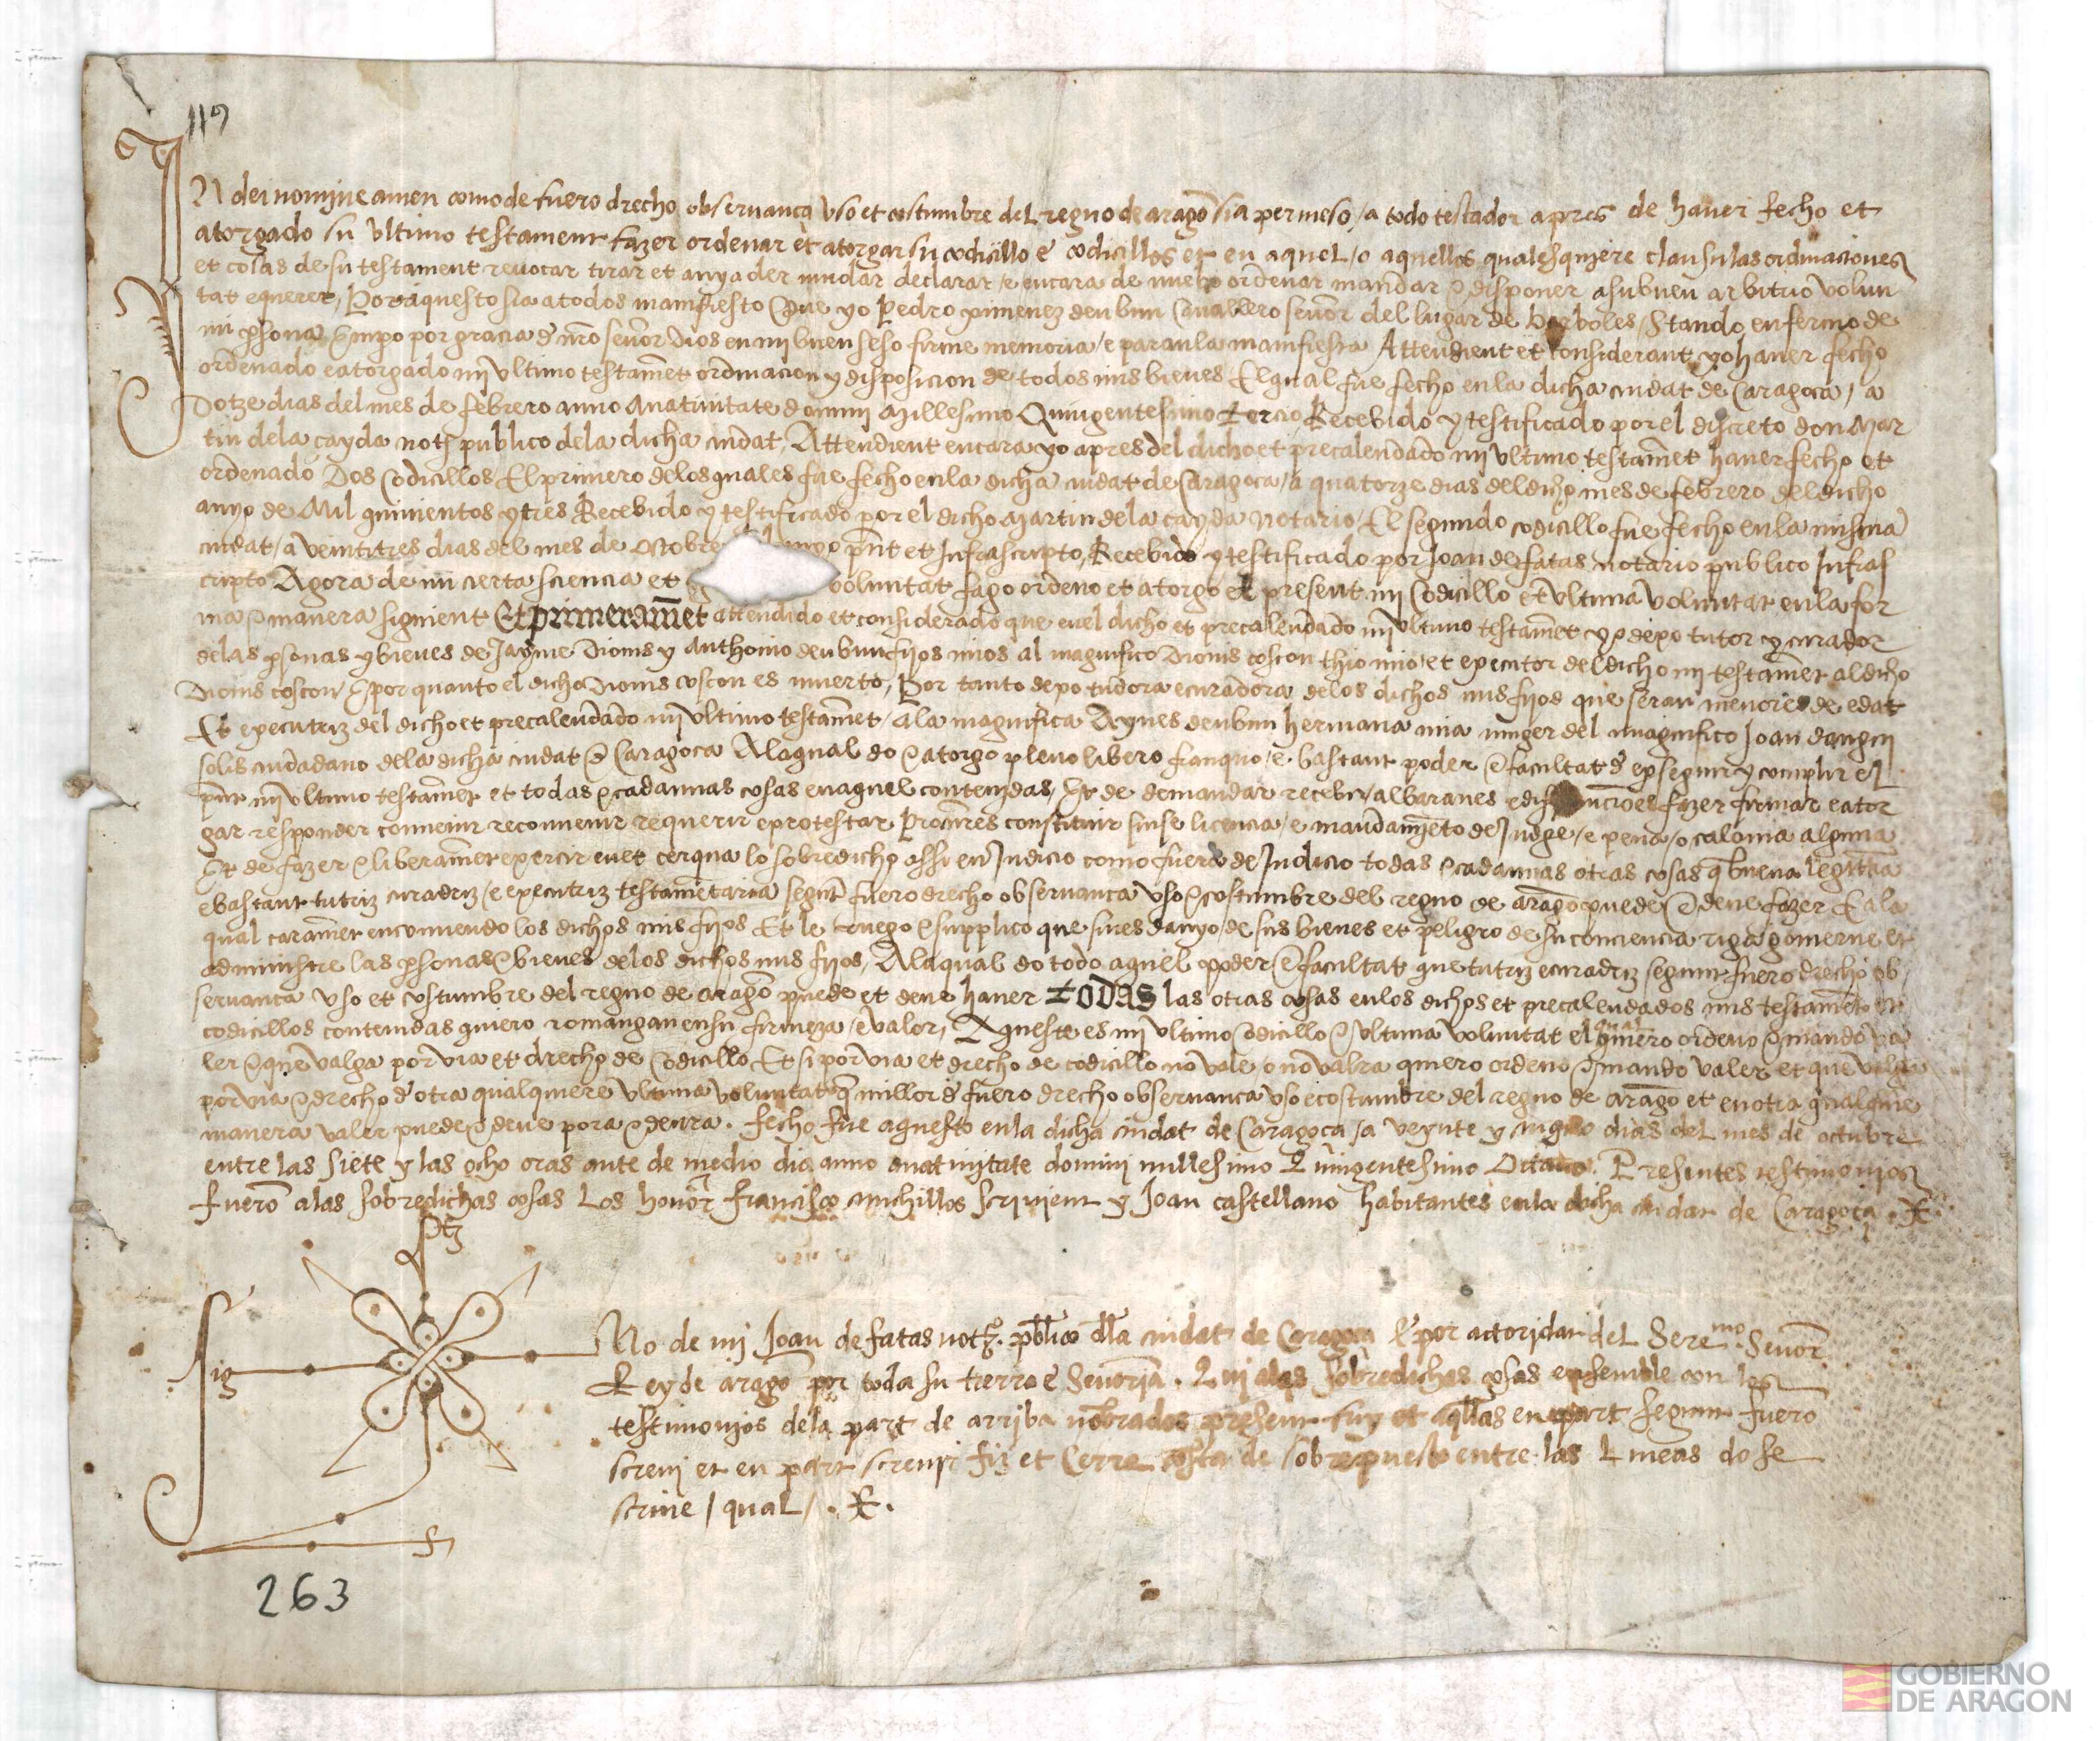 119
IN dei nomine amen como de fuero drecho obseruança vso et costumbre del regno de aragō sia permeso / a todo testador apres de hauer fecho et
atorgado su vltimo testament fazer ordenar et atorgar su codicillo e codicillos et en aquel / o aquellos qualesquiere clausulas ordinaciones
et cosas de su testament reuocar tirar et anyader mudar declarar / e encara de nueuo ordenar mandar e disponer a su buen arbitrio volun
tat e querer, Por aquesto sia a todos manifiesto Que yo Pedro ximenez denbun cauallero senor del lugar de barboles / Stando enfermo de
mi psona, Empo por gracia d nro senor dios en mi buen seso firme memoria / e paraula manifiesta Attendient et considerant yo hauer fecho
ordenado e atorgado mi vltimo testamēt ordinacion y disposicion de todos mis bienes El qual fue fecho en la dicha ciudat de Caragoca / a
Dotze dias del mes de febrero anno anatiuitate domini Millesimo Quingentesimo tercio Recebido y testificado por el discreto don Mar
tin dela cayda not publico dela dicha ciudat, Attendient encara yo apres del dicho et precalendado mi vltimo testamēt hauer fecho et
ordenado Dos Codicillos El primero delos quales fue fecho en la dicha ciudat de Caragoca / a quatorze dias del dicho mes de febrero del dicho
anyo de Mil quinientos y tres Recebido y testificado por el dicho Martin dela cayda Notario / El segundo codicillo fue fecho en la misma
ciudat / a veintitres dias del mes de Octobre del anyo pnt et Infrascripto, Recebido y testificado por Joan de fatas notario publico Infras
cripto Agora de mi cierta sciencia et voluntat fago ordeno et atorgo el present mi Codicillo et vltima voluntat en la for
ma e manera siguient Et primeramēt attendido et considerado que en el dicho et precalendado mi vltimo testamēt yo depo tutor y curador
delas psonas y bienes de Jayme Dionis y Anthonio denbun fijos mios al magnifico Dionis coscon thio mio / et executor del dicho mi testamēt al dicho
Dionis coscon / E por quanto el dicho Dionis coscon es muerto, Por tanto depo tudora e curadora delos dichos mis fijos que seran menores de edat
Et executriz del dicho et precalendado mi vltimo testamēt / ala magnifica Aynes denbun hermana mia muger del magnifico Joan dangu
solis ciudadano dela dicha ciudat d Caragoca Ala qual do e atorgo pleno libero franquo / e bastant poder e facultat d exseguir y complir el
pnt mi vltimo testamēt et todas e cadaunas cosas en aquel contenidas, Et de demandar recebir / albaranes e difiniciones fazer firmar e ator
gar responder conuenir reconuenir requerir e protestar Procures constituir sinse licencia / e mandamiēto de Judge / e pena / o calonia alguna
Et de fazer e liberamēt exercir en et cerqua lo sobredicho assi en Judicio como fuera de Judicio todas e cadaunas otras cosas q buena legitima
e bastant tutriz curadriz / e executriz testamētaria segunt fuero drecho obseruanca vso e costumbre del regno de aragō puede e deue fazer E ala
qual caramēt encomiendo los dichos mis fijos Et le ruego e supplico que sines danyo de sus bienes et peligro de su conciencia riga gouierne et
administre las psonas e bienes delos dichos mis fijos, Ala qual do todo aquel poder e facultat que tutriz e curadriz segunt fuero drecho ob
seruanca vso et costumbre del regno de aragō puede et deue hauer Todas las otras cosas en los dichos et precalendados mis testamēto et
codicillos contenidas quiero romangan en su firmeza / e valor, Aqueste es mi vltimo codicillo e vltima voluntat el qual quiero ordeno e mando va
ler e que valga por via et drecho de codicillo Et si por via et drecho de codicillo no vale o no valra quiero ordeno e mando valer et que valga
por via e drecho d otra qualquiere vltima voluntat q millor d fuero drecho obseruanca vso e costumbre del regno de aragō et en otra qualquie
manera valer puede e deue pora e deura. fecho fue aquesto en la dicha ciudat de Caragoca / a veynte y cinquo dias del mes de octubre
entre las siete y las ocho oras ante de medio dia anno anatiuitate domini millesimo Quingentesimo Octauo. Presentes testimonios
fuerō alas sobredichas cosas Los honor francisco cunchillos scriuient y Joan castellano habitantes en la dicha ciudat de Caragoca.
Sig
No de mi Joan de fatas not. pblico dla ciudat de Caragoca E por actoridat del Seremo Senor
Rey de aragō por toda su tierra e Senoria. Qui alas sobredichas cosas ensemble con los
testimonios dela part de arriba nōbrados present fuy et aqllas en part segunt fuero
screui et en part screuir fiz et Cerre consta de sobrepuesto entre las Lineas do se
scriue / qual /.
263
GOBIERNO
DE ARAGON